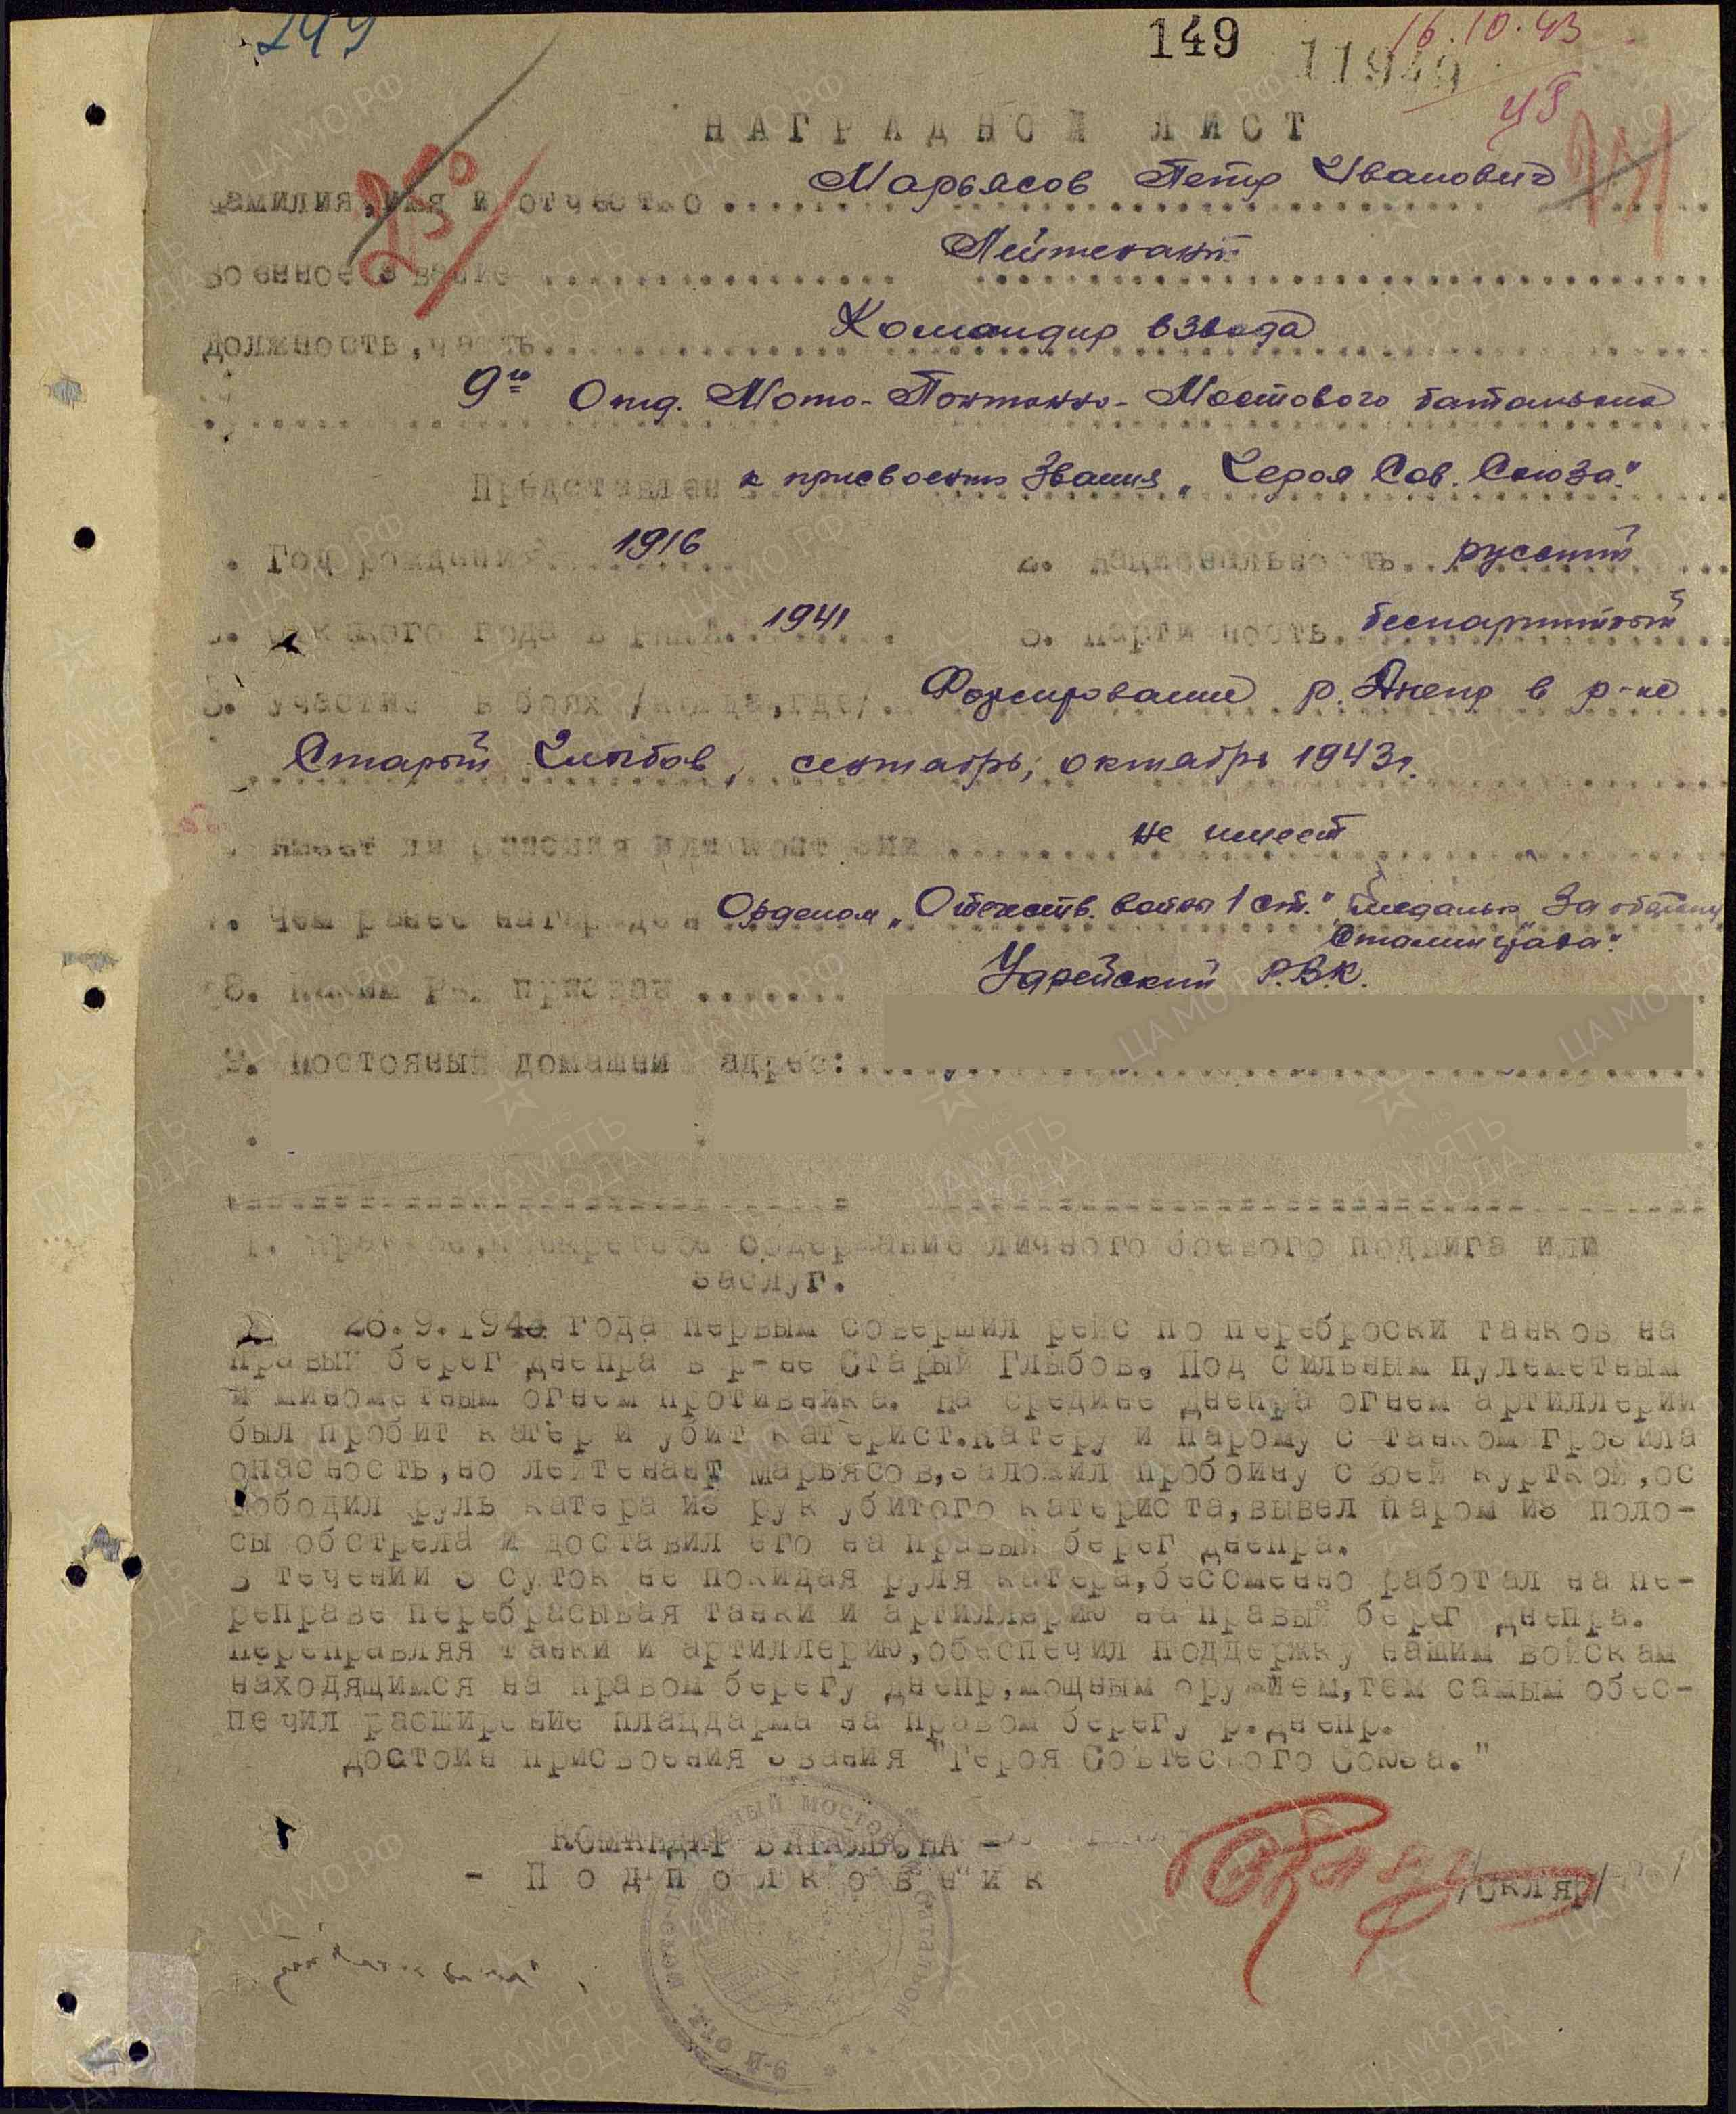 249
149
16.10.43
11940
НАГРАДНОЙ ЛИСТ
250
251
Фамилия, имя и отчество Марьясов Петр Иванович
Военное звание Лейтенант
Должность, часть Командир взвода
9го Отд. Мото-Понтонно-Мостового батальона
Представлен к присвоению звания „Героя Сов. Союза"
Год рождения 1916 2. Национальность русский
с какого года в РККА 1941 3. Партийность беспартийный
5. Участие в боях /когда, где/. Форсирование р. Днепр в р-не
Старый Глыбов, сентябрь, октябрь 1943г.
имеет ли ранения или контузии не имеет
7. Чем ранее награжден Орденом „Отечеств. войны 1 ст." Медалью „За оборону
Сталинграда".
8. Каким РВК призван Р.В.К.
9. Постоянный домашний адрес:
1. Краткое, конкретное содержание личного боевого подвига или
заслуг.
26.9.1943 года первым совершил рейс по переброски танков на
правый берег Днепра в р-не Старый Глыбов, Под сильным пулеметным
и минометным огнем противника. На средине Днепра огнем артиллерии
был пробит катер и убит катерист. Катеру и парому с танком грозила
опасность, но лейтенант Марьясов, заложил пробоину своей курткой, ос
вободил руль катера из рук убитого катериста, вывел паром из поло-
сы обстрела и доставил его на правый берег Днепра.
В течении 3 суток не покидая руля катера, бессменно работал на пе-
реправе перебрасывая танки и артиллерию на правый берег Днепра.
Переправляя танки и артиллерию, обеспечил поддержку нашим войскам
находящимся на правом берегу Днепр, мощным оружием, тем самым обес-
печил расширение плацдарма на правом берегу р. Днепр.
Достоин присвоения звания "Героя Совтестого Союза."
КОМАНДИР БАТАЛЬОНА -
- Подполковник /Скляр/
9-й отд. мостовой батальон
ЦА МО РФ
ПАМЯТЬ НАРОДА